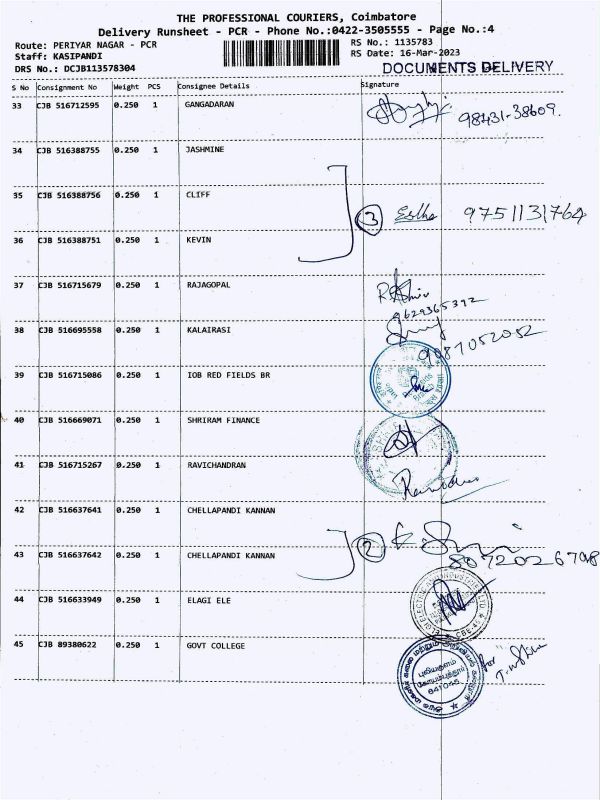 THE PROFESSIONAL COURIERS, Coimbatore
Delivery Runsheet - PCR - Phone No.:0422-3505555 - Page No.:4
Route: PERIYAR NAGAR - PCR
RS No.: 1135783
Staff: KASIPANDI
RS Date: 16-Mar-2023
DRS No.: DCJB113578304
DOCUMENTS DELIVERY
S No Consignment No Weight PCS Consignee Details Signature
33 CJB 516712595 0.250 1 GANGADARAN
98431-38609.
34 CJB 516388755 0.250 1 JASHMINE
35 CJB 516388756 0.250 1 CLIFF
3 9751131764
36 CJB 516388751 0.250 1 KEVIN
37 CJB 516715679 0.250 1 RAJAGOPAL
9629365392
38 CJB 516695558 0.250 1 KALAIRASI
9087052052
39 CJB 516715086 0.250 1 IOB RED FIELDS BR
40 CJB 516669071 0.250 1 SHRIRAM FINANCE
41 CJB 516715267 0.250 1 RAVICHANDRAN
42 CJB 516637641 0.250 1 CHELLAPANDI KANNAN
2
43 CJB 516637642 0.250 1 CHELLAPANDI KANNAN
8072026798
44 CJB 516633949 0.250 1 ELAGI ELE
45 CJB 89380622 0.250 1 GOVT COLLEGE
புலியகுளம்
கோயம்புத்தூர்
641045